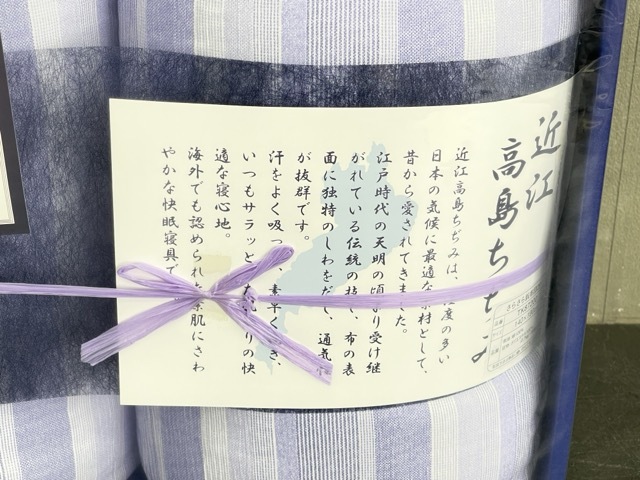 近江
高島ちぢみ
近江高島ちぢみは、湿度の多い
日本の気候に最適な素材として、
昔から愛されてきました。
江戸時代の天明の頃より受け継
がれている伝統の技で、布の表
面に独特のしわをだし、通気性
が抜群です。
汗をよく吸って、素早く乾き、
いつもサラッとした肌ざわりの快
適な寝心地。
海外でも認められた素肌にさわ
やかな快眠寝具です。